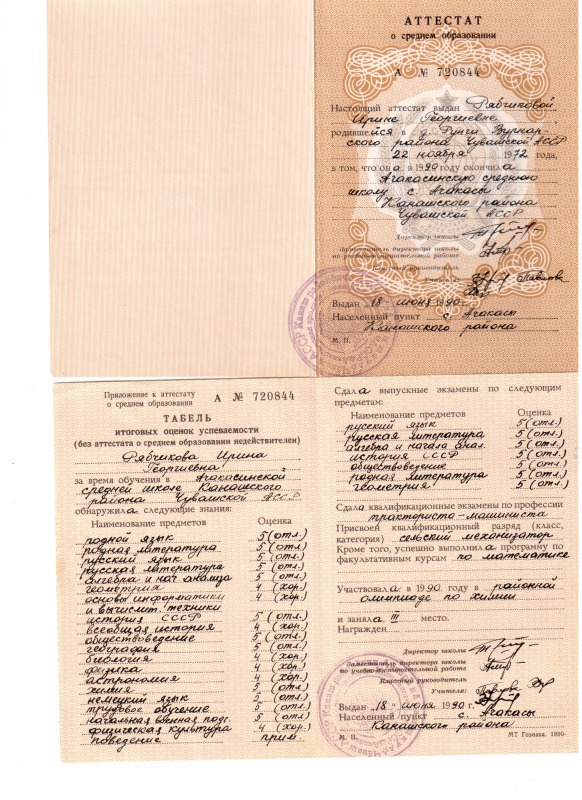 АТТЕСТАТ
о среднем образовании
А № 720844
Настоящий аттестат выдан Рябчиковой
Ирине Георгиевне
родившейся в д. Рунги Вурнар-
ского района Чувашской АССР
22 ноября 1972 года,
в том, что она в 1990 году окончила
Ачакасинскую среднюю
школу с. Ачакасы
Канашского района
Чувашской АССР
Директор школы
Заместитель директора школы
по учебно-воспитательной работе
Классный руководитель
Учителя: Павлова
Выдан "18" июня 1990 г.
Населенный пункт с. Ачакасы
Канашского района
М. П.
Приложение к аттестату
о среднем образовании А № 720844
ТАБЕЛЬ
итоговых оценок успеваемости
(без аттестата о среднем образовании недействителен)
Рябчикова Ирина
Георгиевна,
за время обучения в Ачакасинской
средней школе Канашского
района Чувашской АССР
обнаружила следующие знания:
Наименование предметов Оценка
родной язык 5 (отл.)
родная литература 5 (отл.)
русский язык 5 (отл.)
русская литература 5 (отл.)
алгебра и нач. анализа 5 (отл.)
геометрия 4 (хор.)
основы информатики 4 (хор.)
и вычислит. техники
история СССР 5 (отл.)
всеобщая история 4 (хор.)
обществоведение 5 (отл.)
география 5 (отл.)
биология 4 (хор.)
физика 4 (хор.)
астрономия 4 (хор.)
химия 5 (отл.)
немецкий язык 5 (отл.)
трудовое обучение 5 (отл.)
начальная военная подг. 5 (отл.)
физическая культура 4 (хор.)
поведение прим.
Сдала выпускные экзамены по следующим
предметам:
Наименование предметов Оценка
русский язык 5 (отл.)
русская литература 5 (отл.)
алгебра и начала анал. 5 (отл.)
история СССР 5 (отл.)
обществоведение 5 (отл.)
родная литература 5 (отл.)
геометрия 5 (отл.)
Сдала квалификационные экзамены по профессии
тракториста-машиниста
Присвоен квалификационный разряд (класс,
категория) сельский механизатор
Кроме того, успешно выполнила программу по
факультативным курсам по математике
Участвовала в 1990 году в районной
олимпиаде по химии
и заняла III место.
Награжден
Директор школы
Заместитель директора школы
по учебно-воспитательной работе
Классный руководитель
Учителя:
Выдан "18" июня 1990 г.
Населенный пункт с. Ачакасы
Канашского района
М. П. МТ Гознака. 1990.